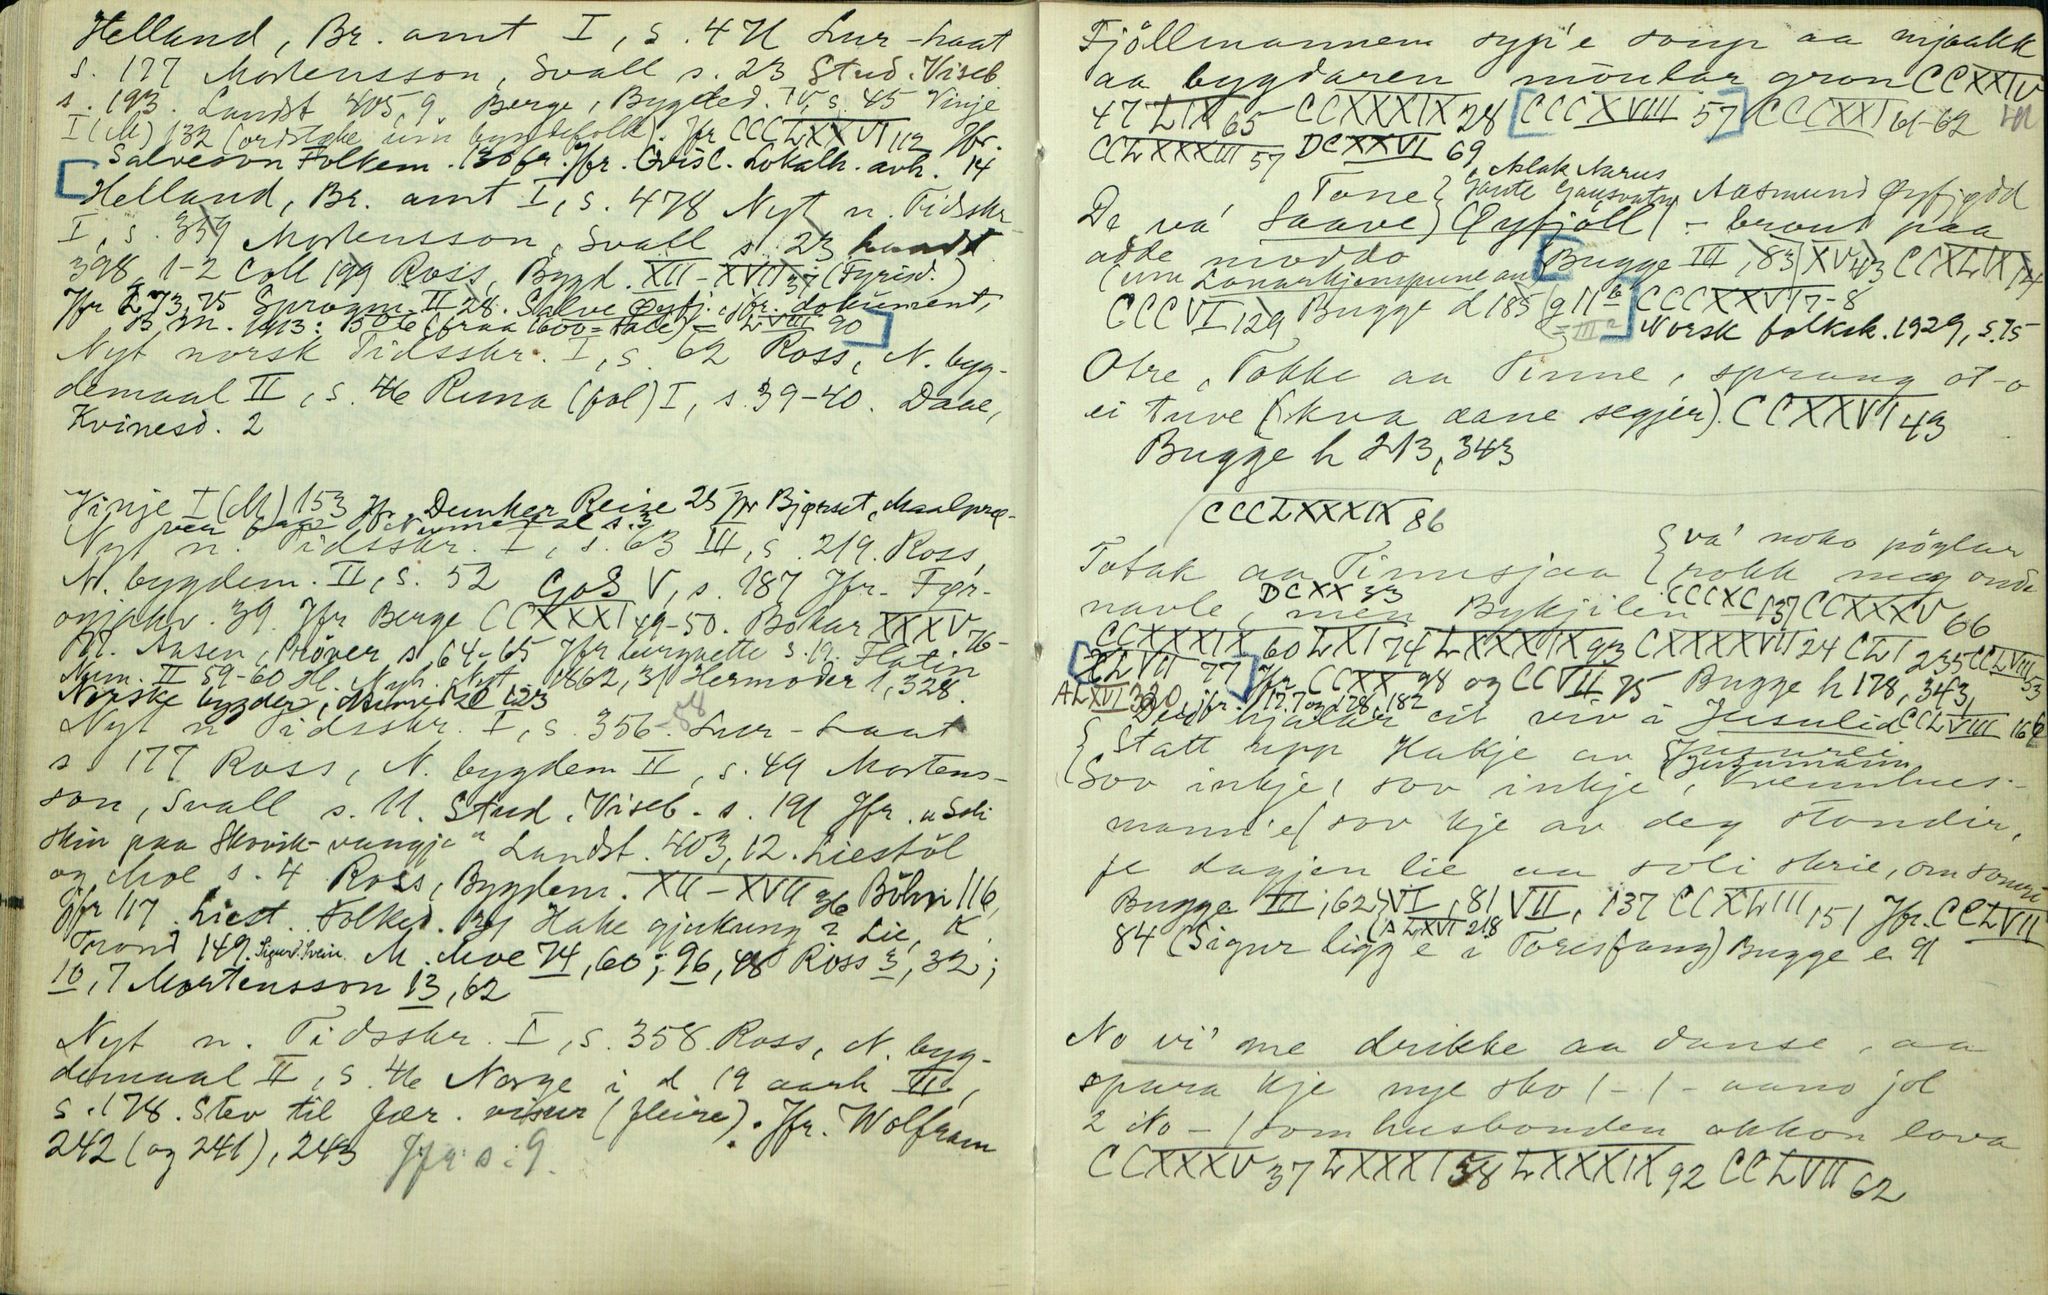 Helland, Br. amt I, s. 471 Lur-haat
s. 177 Mortensson, Svall s. 23 Stud. Viseb
s. 193. Landst 405,9. Berge, Bygded. IV, s. 45 Vinje
I (M) 132 (ordstøke um bygdefolk). Jfr CCCLXXVI 112 Jfr.
Salveson Folkem. 130 fr. Jfr. Grisl. Lokalh. avh. 14
Helland, Br. amt I, s. 478 Nyt n. Tidsskr
I, s. 359 Mortensson, Svall s. 23 Landst
398, 1-2 Coll 199 Ross, Bygd. XII-XVII 37 (Fyrisd.)
Jfr 73, 75 Sprogm. II 28. Salve
B. M. 1913: 150 (fraa 1600-tale) - LVIII 90
Nyt norsk Tidsskr. I, s. 62 Ross, N. byg-
demaal II, s. 46 Runa (fol) I, s. 39-40. Daae,
Kvinesd. 2
Vinje I (M) 153 Jfr. Dunker Reise 25 Jfr Bjørset, Maalprø-
ver Numedal s. 3
Nyt n. Tidsskr. I, s. 63 III, s. 219. Ross,
N. bygdem. II, s. 52 GoS V, s. 187 Jfr. Før-
onjakv. 39. Jfr Berge CCXXXI 49-50. Bökar XXXV 76-
Aasen, Prøver s. 64-65 Jfr s. 19. Flatin
Num. II 59-60 Nyt 1862, 31 Hermoder 1, 328.
Norske bygder, Numedal 123
Nyt n Tidsskr. I, s. 356-58 Lur-haat
s 177 Ross, N. bygdem II, s. 49 Mortens-
son, Svall s. 11. Stud. Viseb. s. 191 Jfr. "Soli
skin paa Skorik-vangje" Landst. 403, 12. Liestöl
og Moe s. 4 Ross, Bygdem. XII-XVII 36 Böhn 116,
jfr 117. Liest. Folked. Hake gjukung 2 Lie, K.
Trond 149. Sigurd Svein M. Moe 74, 60; 96, 48 Ross 3, 32;
10, 7 Mortensson 13, 62
Nyt n. Tidsskr. I, s. 358. Ross, N. byg-
demaal II, s. 46 Norge i d 19 aarh III,
s. 178. Stev til fær. visur (fleire). Jfr. Wolfram
242 (og 241), 243 Jfr s. 9.
Fjöllmannem syp'e soup aa mjaakk
aa bygdaren möular gron CCXXIV
47 LIX 65 CCXXXIX 28 [CCCXVIII 57] CCCXXI 61-62
CCLXXXIII 57 DCXXVI 69
, Aslak Aarus
Tone { Gaute Gausvatn, Aasmund Øyfjødd
De va' Saave) Øyfjöll (- brout paa
adde moddo [Bugge III, 83 XV 43 CCXLIX 14
(um Lonarkjempune au
CCCVI 129 Bugge d 185 g 11 b] CCCXXVI 7-8
= III a Norsk folkek. 1929, s. 75
Otre, Tokke aa Tinne, sprang ot-o
ei tuve (kva aane segjer). CCXXVI 43
Bugge h 213, 343
CCCLXXXIX 86
Totak aa Tinnsjaa { va' noko pöylar
rokk meg onde
navle, men Bykjilen CCCXC 137 CCXXXV 66
DCXX 33
CCXXXIX 60 LXI 74 LXXXIX 93 CXXXXVII 24 CLI 235 CCLVIII 53
[XLVII 77] Jfr. CCXX 98 og CCVII 75 Bugge h 178, 343,
ALXVI 320 jfr. 177 og 178, 182
hjalar eit viv i Jusulid CCLVIII 166
{ Statt upp Hakje av { Jusurei
Jusumann
(Sov inkje, sov inkje, Vremlues-
mann'e/ sov kje av deg stondir,
fe dagjen lie aa soli skrie, om somri
Bugge III, 62, VI, 81 VII, 137 CCXLIII 151 Jfr. CCLVII
84 (Sigur ligg e i Torisfang) (ALXVI 218 Bugge e 91
No vi' me drikke aa danse, aa
spara kje nye sko /-/- aano jol
2 No - / som husbonden okkon lova
CCXXXV 37 LXXXI 58 LXXXIX 92 CCLVII 62